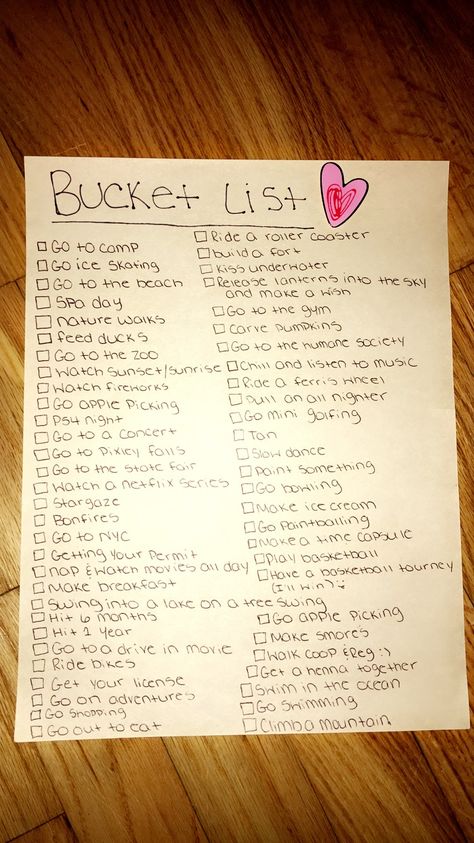 Bucket List
☐ Go to camp
☐ Go ice skating
☐ Go to the beach
☐ Spa day
☐ nature walks
☐ feed ducks
☐ Go to the zoo
☐ Watch sunset/sunrise
☐ Watch fireworks
☐ Go apple picking
☐ PS4 night
☐ Go to a concert
☐ Go to Pixley falls
☐ Go to the state fair
☐ Watch a netflix series
☐ Stargaze
☐ Bonfires
☐ Go to NYC
☐ Getting your Permit
☐ nap & watch movies all day
☐ Make breakfast
☐ Swing into a lake on a tree swing
☐ Hit 6 months
☐ Hit 1 year
☐ Go to a drive in movie
☐ Ride bikes
☐ Get your license
☐ Go on adventures
☐ Go shopping
☐ Go out to eat
☐ Ride a roller coaster
☐ build a fort
☐ Kiss underwater
☐ Release lanterns into the sky
and make a wish
☐ Go to the gym
☐ Carve pumpkins
☐ Go to the humane society
☐ Chill and listen to music
☐ Ride a ferris wheel
☐ Pull an all nighter
☐ Go mini golfing
☐ Tan
☐ Slow dance
☐ Paint something
☐ Go bowling
☐ Make ice cream
☐ Go Paintballing
☐ Make a time capsule
☐ Play basketball
☐ Have a basketball tourney
(I'll win) :)
☐ Go apple picking
☐ Make smores
☐ Walk Coop & Reg :)
☐ Get a henna together
☐ Swim in the ocean
☐ Go swimming
☐ Climb a mountain